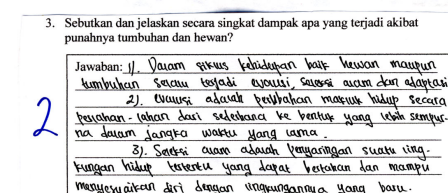 3. Sebutkan dan jelaskan secara singkat dampak apa yang terjadi akibat
punahnya tumbuhan dan hewan?
Jawaban: 1). Dalam siklus kehidupan baik hewan maupun
tumbuhan selalu terjadi evolusi, seleksi alam dan adaptasi
2). evolusi adalah perubahan makhluk hidup secara
perlahan-lahan dari sederhana ke bentuk yang lebih sempur-
2
na dalam jangka waktu yang lama.
3). Seleksi alam adalah penyaringan suatu ling-
kungan hidup tertentu yang dapat bertahan dan mampu
menyesuaikan diri dengan lingkungannya yang baru.